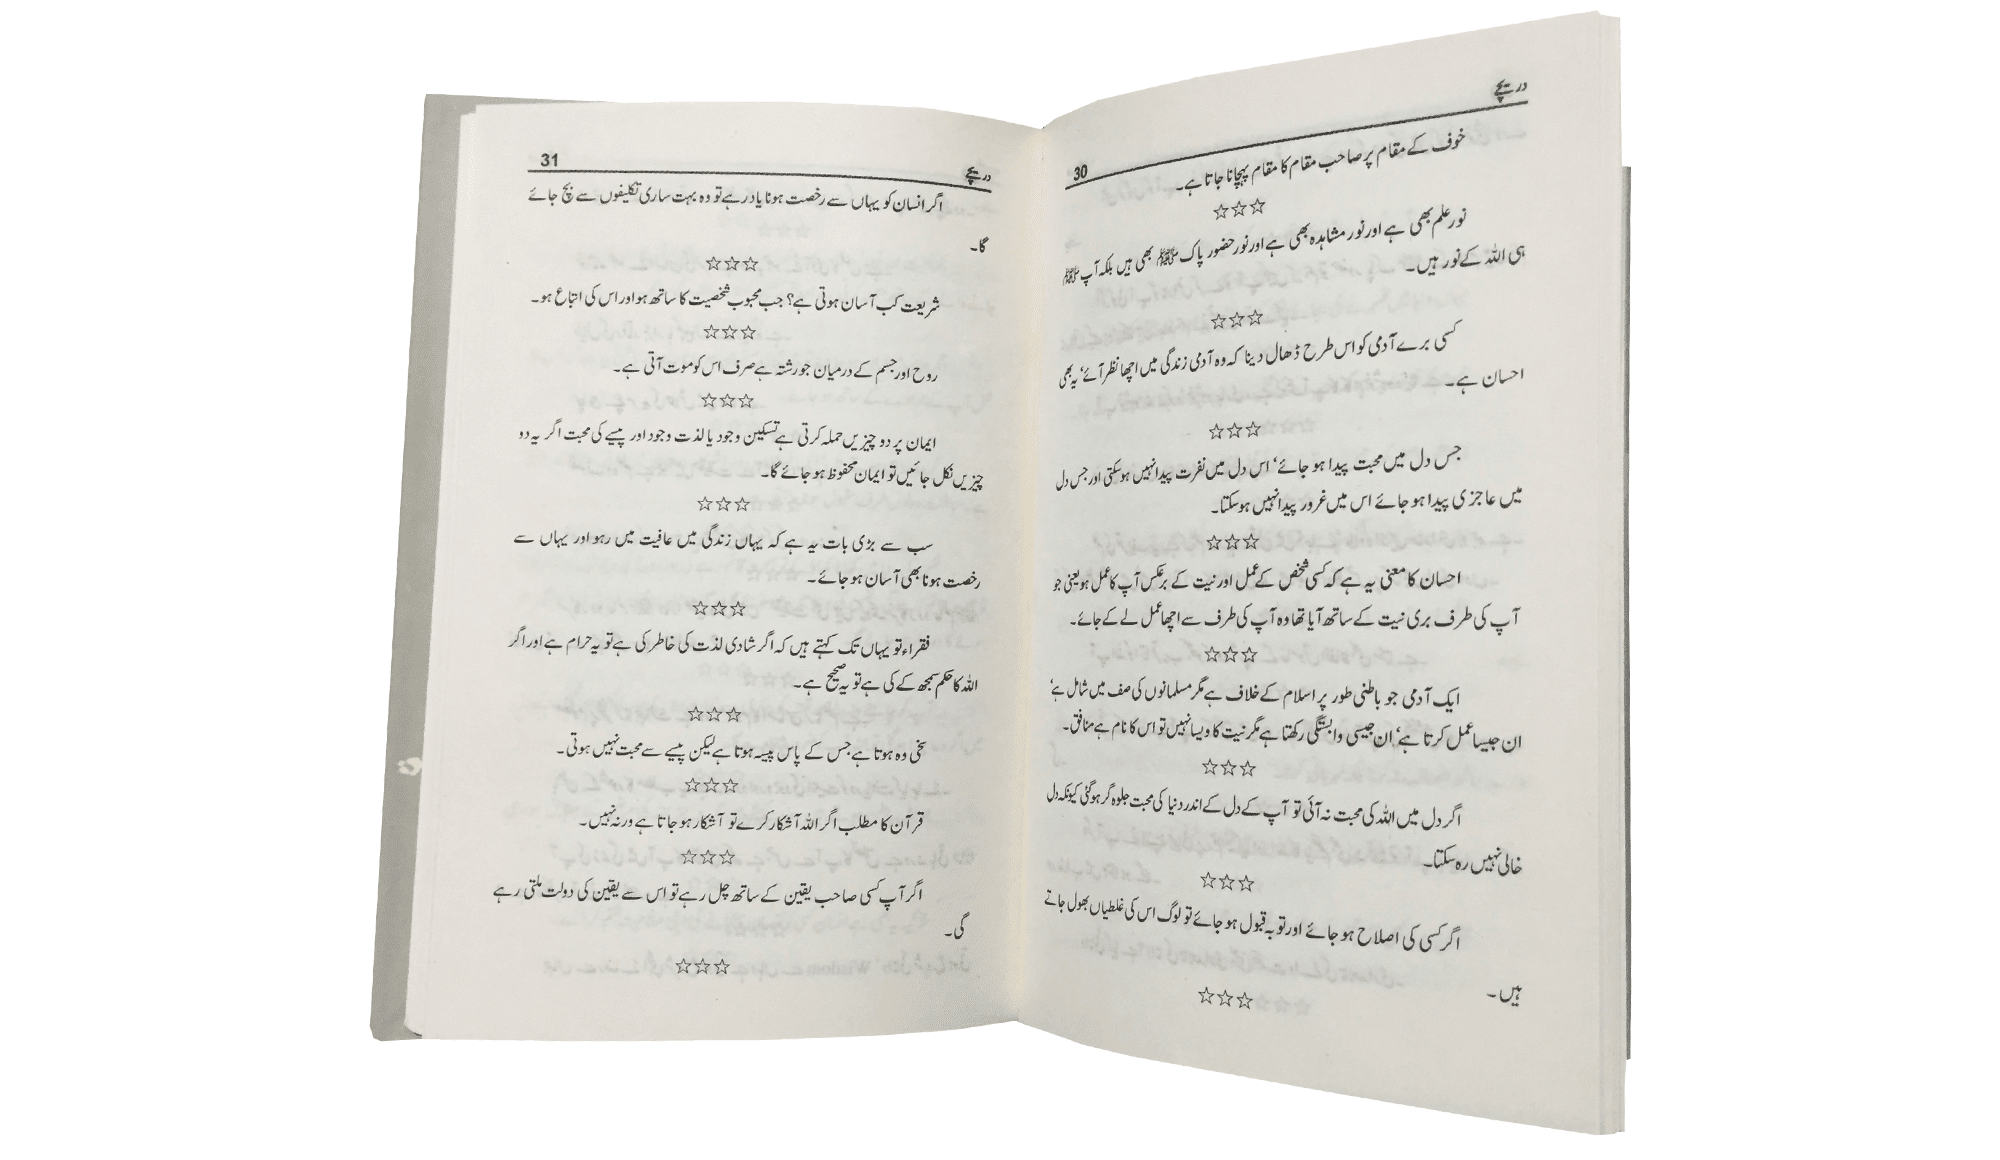 دریچے
30
خوف کے مقام پر صاحب مقام کا مقام پہچانا جاتا ہے۔
☆☆☆
نور علم بھی ہے اور نور مشاہدہ بھی ہے اور نور حضور پاک ﷺ بھی ہیں بلکہ آپ ﷺ
ہی اللہ کے نور ہیں۔
☆☆☆
کسی برے آدمی کو اس طرح ڈھال دینا کہ وہ آدمی زندگی میں اچھا نظر آئے‘ یہ بھی
احسان ہے۔
☆☆☆
جس دل میں محبت پیدا ہو جائے‘ اس دل میں نفرت پیدا نہیں ہوسکتی اور جس دل
میں عاجزی پیدا ہو جائے اس میں غرور پیدا نہیں ہوسکتا۔
☆☆☆
احسان کا معنی یہ ہے کہ کسی شخص کے عمل اور نیت کے برعکس آپ کا عمل ہو یعنی جو
آپ کی طرف بری نیت کے ساتھ آیا تھا وہ آپ کی طرف سے اچھا عمل لے کے جائے۔
☆☆☆
ایک آدمی جو باطنی طور پر اسلام کے خلاف ہے مگر مسلمانوں کی صف میں شامل ہے‘
ان جیسا عمل کرتا ہے‘ ان جیسی وابستگی رکھتا ہے مگر نیت کا ویسا نہیں تو اس کا نام ہے منافق۔
☆☆☆
اگر دل میں اللہ کی محبت نہ آئی تو آپ کے دل کے اندر دنیا کی محبت جلوہ گر ہوگئی کیونکہ دل
خالی نہیں رہ سکتا۔
☆☆☆
اگر کسی کی اصلاح ہو جائے اور توبہ قبول ہو جائے تو لوگ اس کی غلطیاں بھول جاتے
ہیں۔
☆☆☆
دریچے
31
اگر انسان کو یہاں سے رخصت ہونا یاد رہے تو وہ بہت ساری تکلیفوں سے بچ جائے
گا۔
☆☆☆
شریعت کب آسان ہوتی ہے؟ جب محبوب شخصیت کا ساتھ ہو اور اس کی اتباع ہو۔
☆☆☆
روح اور جسم کے درمیان جو رشتہ ہے صرف اس کو موت آتی ہے۔
☆☆☆
ایمان پر دو چیزیں حملہ کرتی ہے تسکین وجود یا لذت وجود اور پیسے کی محبت اگر یہ دو
چیزیں نکل جائیں تو ایمان محفوظ ہو جائے گا۔
☆☆☆
سب سے بڑی بات یہ ہے کہ یہاں زندگی میں عافیت میں رہو اور یہاں سے
رخصت ہونا بھی آسان ہو جائے۔
☆☆☆
فقراء تو یہاں تک کہتے ہیں کہ اگر شادی لذت کی خاطر کی ہے تو یہ حرام ہے اور اگر
اللہ کا حکم سمجھ کے کی ہے تو یہ صحیح ہے۔
☆☆☆
سخی وہ ہوتا ہے جس کے پاس پیسہ ہوتا ہے لیکن پیسے سے محبت نہیں ہوتی۔
☆☆☆
قرآن کا مطلب اگر اللہ آشکار کرے تو آشکار ہو جاتا ہے ورنہ نہیں۔
☆☆☆
اگر آپ کسی صاحب یقین کے ساتھ چل رہے تو اس سے یقین کی دولت ملتی رہے
گی۔
☆☆☆